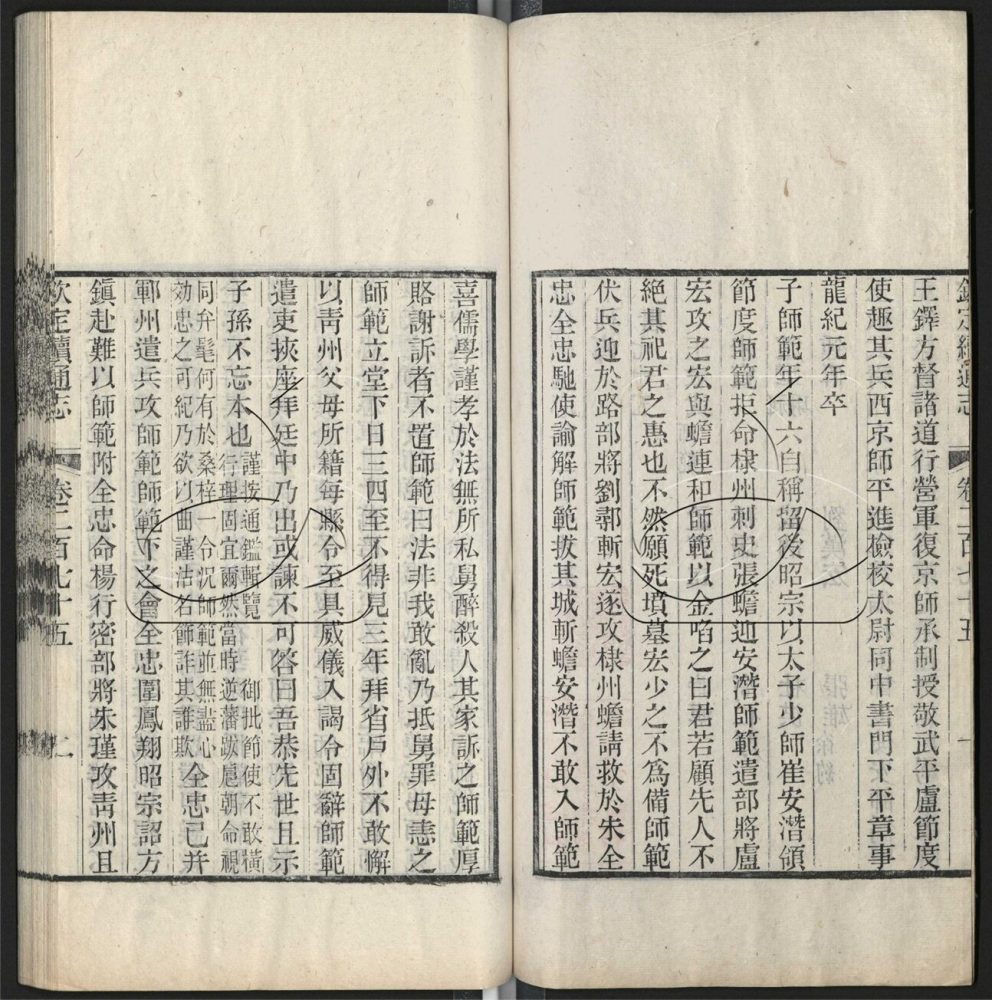 欽定續通志 卷二百七十五 一
王鐸方督諸道行營軍復京師承制授敬武平盧節度
使趣其兵西京師平進檢校太尉同中書門下平章事
龍紀元年卒
子師範年十六自稱留後昭宗以太子少師崔安潛領
節度師範拒命棣州刺史張蟾迎安潛師範遣部將盧
宏攻之宏與蟾連和師範以金啗之曰君若顧先人不
絕其祀君之惠也不然願死墳墓宏少之不為備師範
伏兵迎於路部將劉鄩斬宏遂攻棣州蟾請救於朱全
忠全忠馳使諭解師範拔其城斬蟾安潛不敢入師範
喜儒學謹孝於法無所私舅醉殺人其家訴之師範厚
賂謝訴者不置師範曰法非我敢亂乃抵舅罪母恚之
師範立堂下日三四至不得見三年拜省戶外不敢懈
以青州父母所籍每縣令至具威儀入謁令固辭師範
遣吏挾座拜廷中乃出或諫不可答曰吾恭先世且示
子孫不忘本也
謹按通鑑輯覽 御批節使不敢橫
行理固宜爾然當時逆藩跋扈朝命視
同弁髦何有於桑梓一令況師範並無盡心
効忠之可紀乃欲以曲謹沽名飾詐其誰欺
全忠已并
鄆州遣兵攻師範師範下之會全忠圍鳳翔昭宗詔方
鎮赴難以師範附全忠命楊行密部將朱瑾攻青州且
欽定續通志 卷二百七十五